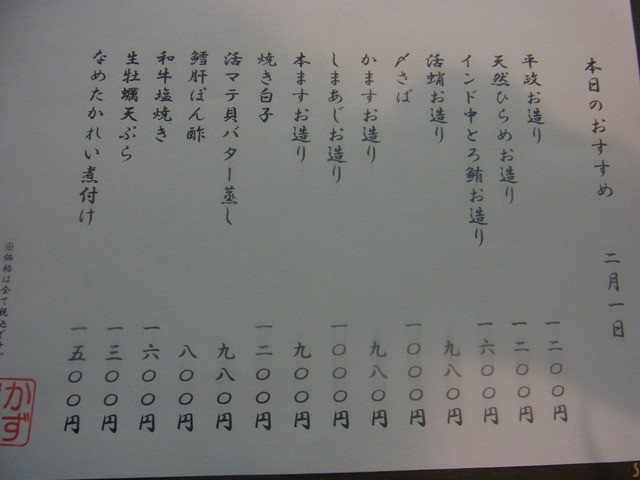 本日のおすすめ 二月一日
平政お造り 一二〇〇円
天然ひらめお造り 一二〇〇円
インド中とろ鮪お造り 一六〇〇円
活蛸お造り 九八〇円
〆さば 一〇〇〇円
かますお造り 九八〇円
しまあじお造り 一〇〇〇円
本ますお造り 九〇〇円
焼き白子 一二〇〇円
活マテ貝バター蒸し 九八〇円
鱈肝ぽん酢 八〇〇円
和牛塩焼き 一六〇〇円
生牡蠣天ぷら 一三〇〇円
なめたかれい煮付け 一五〇〇円
※価格は全て税込です。
かず